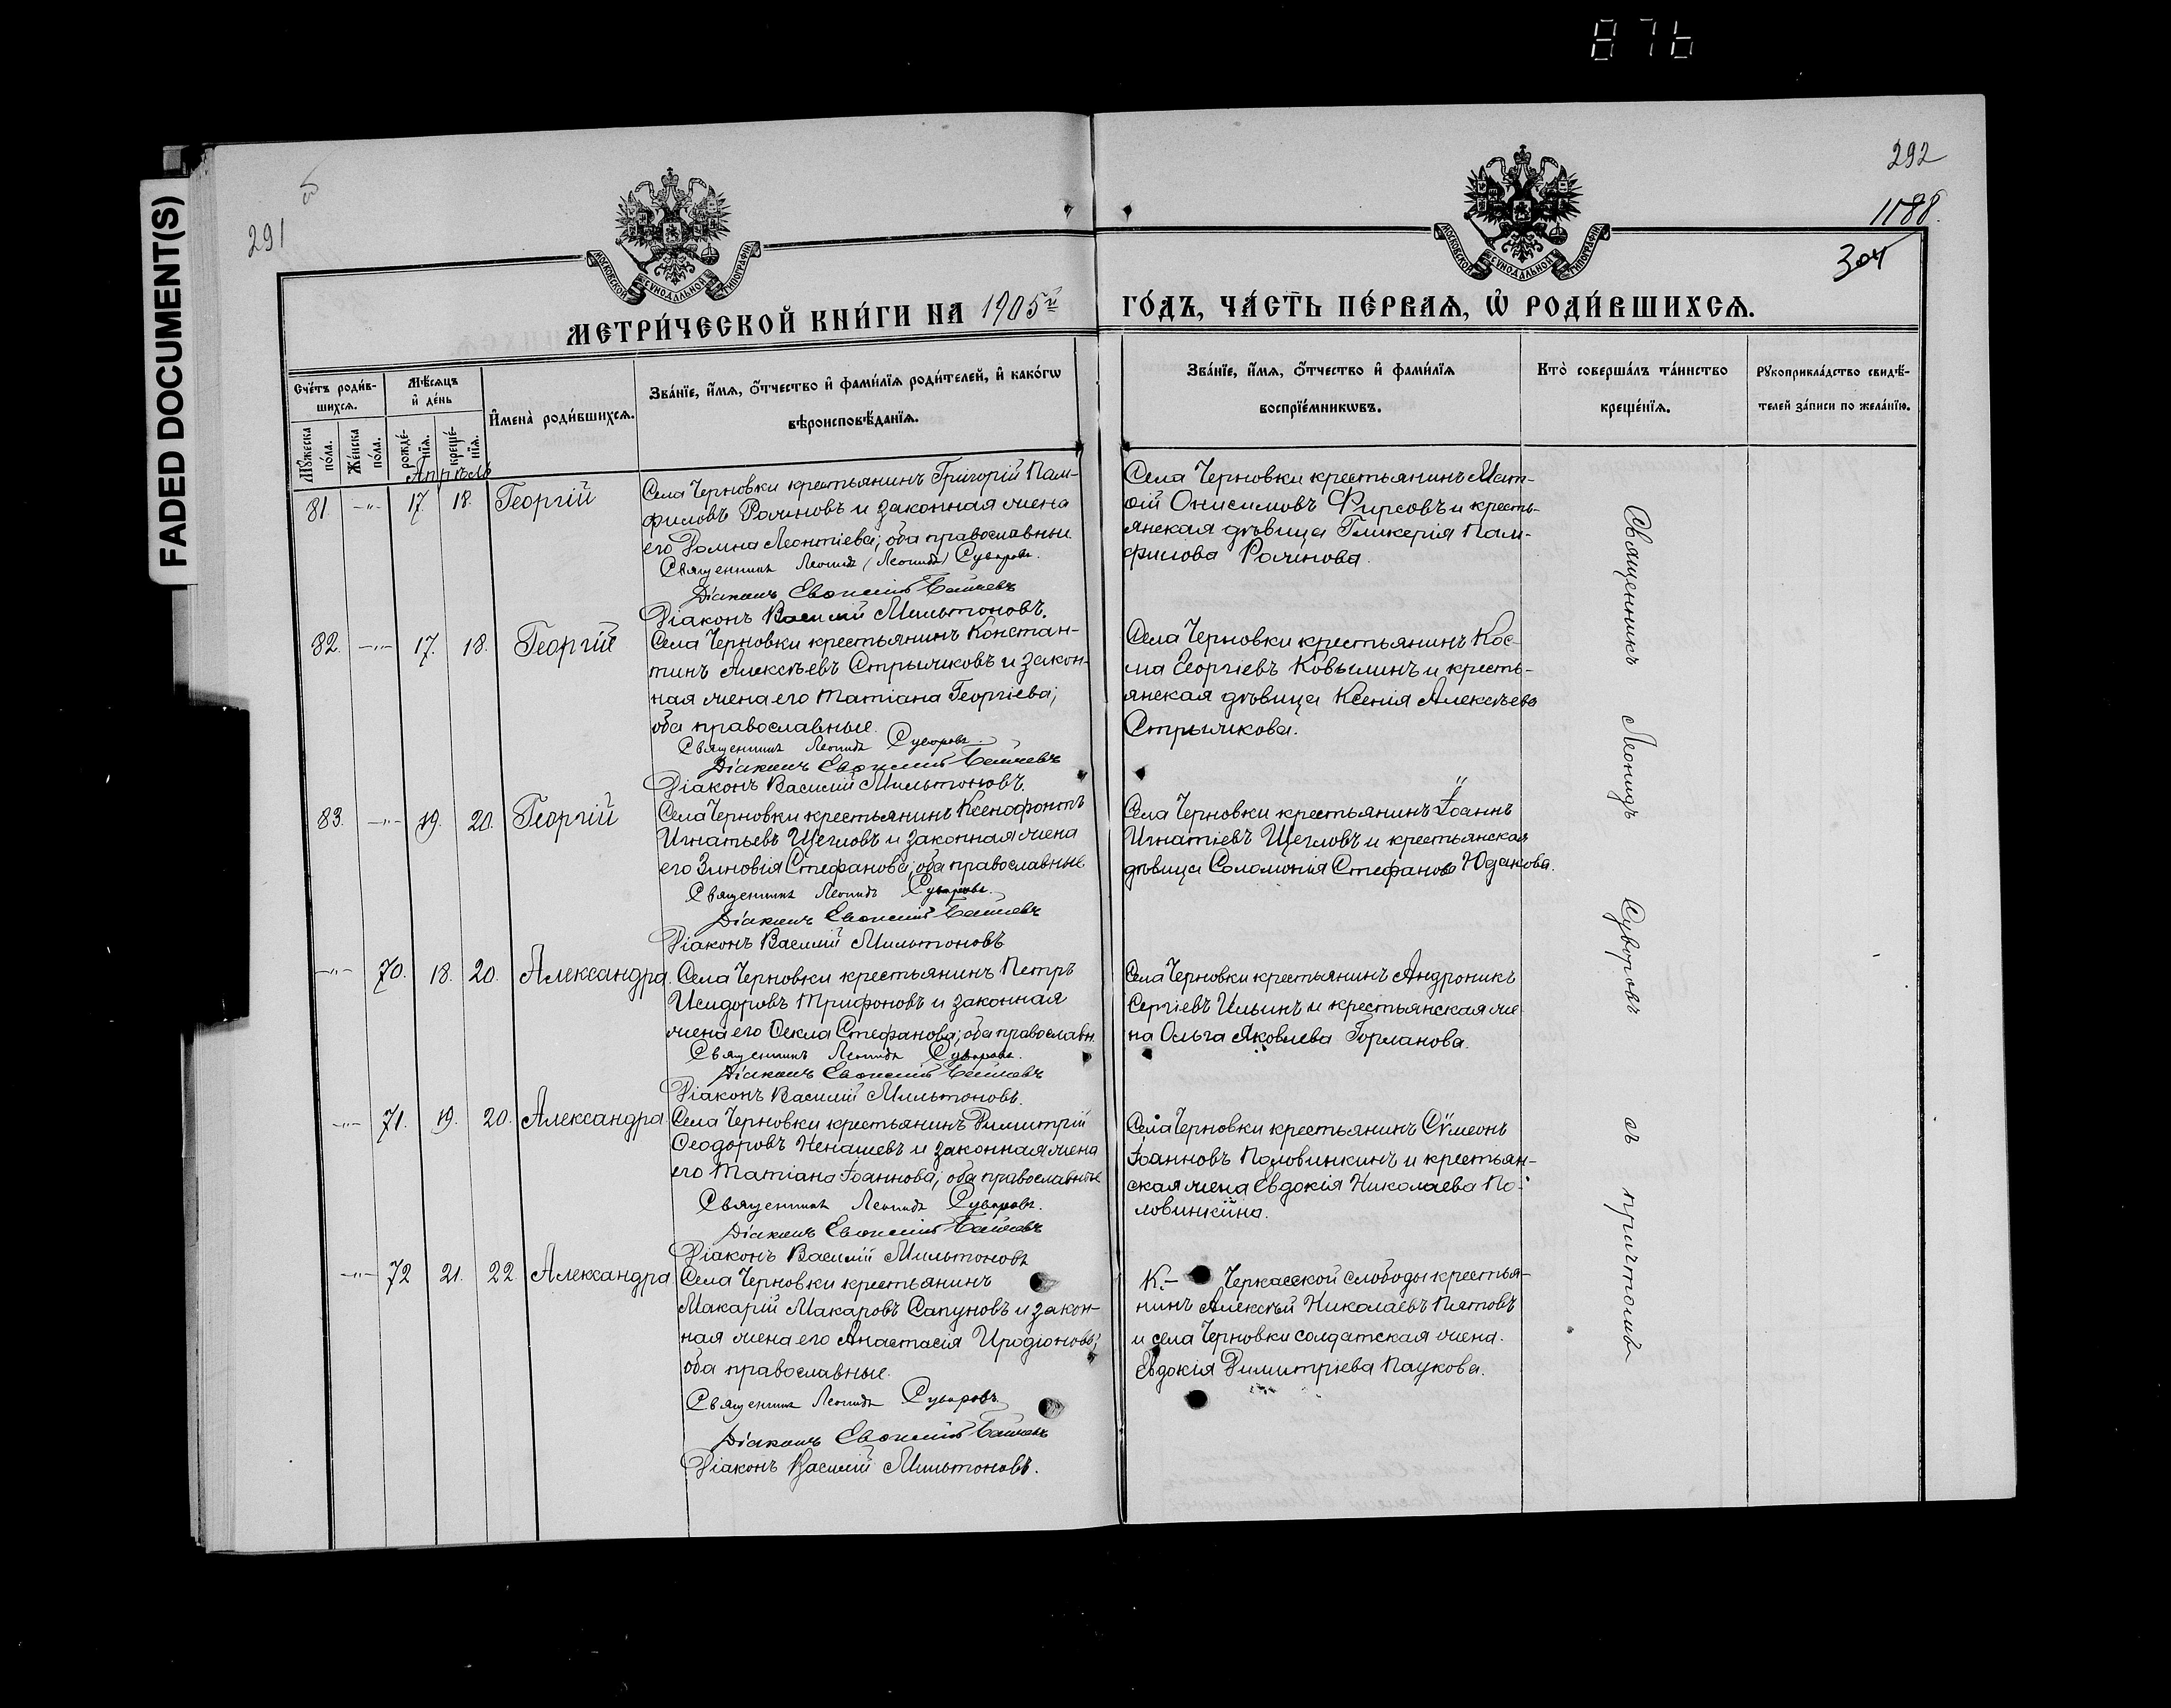 876
FADED DOCUMENT(S)
291
292
1188.
304
МОСКОВСКОЙ СѴНОДАЛЬНОЙ ТИПОГРАФІИ
МОСКОВСКОЙ СѴНОДАЛЬНОЙ ТИПОГРАФІИ
МЕТРИ́ЧЕСКОЙ КНИ́ГИ НА 1905й
ГО́ДЪ, ЧА́СТЬ ПЕ́РВАѦ, Ѡ҆ РОДИ́ВШИХСѦ.
Счётъ роди́в-
шихсѧ.
Мꙋ́жеска
по́ла.
Же́нска
по́ла.
Мѣ́сѧцъ
и҆ де́нь
рожде́-
нїѧ.
креще́-
нїѧ.
И҆мена̀ роди́вшихсѧ.
Зва́нїе, и҆́мѧ, ѻ҆́тчество и҆ фами́лїѧ роди́телей, и҆ како́гѡ
вѣроисповѣ́данїѧ.
Зва́нїе, и҆́мѧ, ѻ҆́тчество и҆ фами́лїѧ
воспрїе́мникѡвъ.
Кто̀ соверша́лъ та́инство
креще́нїѧ.
Рꙋкоприкла́дство свидѣ́-
телей за́писи по жела́нїю.
Апрѣль
81 —"— 17. 18. Георгій
Села Черновки крестьянинъ Григорій Пам-
филовъ Рожновъ и законная жена
его Домна Леонтіева; оба православные
Священникъ Леонидъ (Леонидъ) Суворовъ.
Діаконъ Евѳимій
Діаконъ Василій Мильтоновъ.
Села Черновки крестьянинъ Мат-
ѳій Онисимовъ Фирсовъ и кресть-
янская дѣвица Гликерія Пам-
филова Рожнова.
82. —"— 17. 18. Георгій
Села Черновки крестьянинъ Констан-
тинъ Алексѣевъ Стрыжковъ и закон-
ная жена его Татіана Георгіева;
оба православные.
Священникъ Леонидъ Суворовъ.
Діаконъ Евѳимій
Діаконъ Василій Мильтоновъ.
Села Черновки крестьянинъ Кос-
ма Георгіевъ Ковылинъ и кресть-
янская дѣвица Ксенія Алексѣева
Стрыжкова.
83. —"— 19. 20. Георгій
Села Черновки крестьянинъ Ксенофонтъ
Игнатьевъ Щегловъ и законная жена
его Зиновія Стефанова; оба православные
Священникъ Леонидъ Суворовъ.
Діаконъ Евѳимій
Діаконъ Василій Мильтоновъ
Села Черновки крестьянинъ Іоаннъ
Игнатіевъ Щегловъ и крестьянская
дѣвица Соломонія Стефанова Юдакова.
—"— 70. 18. 20. Александра.
Села Черновки крестьянинъ Петръ
Исидоровъ Трифоновъ и законная
жена его Ѳекла Стефанова; оба православн.
Священникъ Леонидъ Суворовъ.
Діаконъ Евѳимій
Діаконъ Василій Мильтоновъ.
Села Черновки крестьянинъ Андроникъ
Сергіевъ Ильинъ и крестьянская же-
на Ольга Яковлева Горланова.
—"— 71. 19. 20. Александра.
Села Черновки крестьянинъ Димитрій
Ѳеодоровъ Ненашевъ и законная жена
его Татіана Іоаннова; оба православные
Священникъ Леонидъ Суворовъ.
Діаконъ Евѳимій
Діаконъ Василій Мильтоновъ
Села Черновки крестьянинъ Сѵмеонъ
Іоанновъ Половинкинъ и крестьян-
ская жена Евдокія Николаева По-
ловинкина.
—"— 72 21. 22. Александра
Села Черновки крестьянинъ
Макарій Макаровъ Сапуновъ и закон-
ная жена его Анастасія Иродіонова;
оба православные.
Священникъ Леонидъ Суворовъ
Діаконъ Евѳимій
Діаконъ Василій Мильтоновъ.
К.- Черкасской слободы крестья-
нинъ Алексѣй Николаевъ Пятовъ
и села Черновки солдатская жена
Евдокія Димитріева Паукова.
Священникъ Леонидъ Суворовъ съ причтомъ